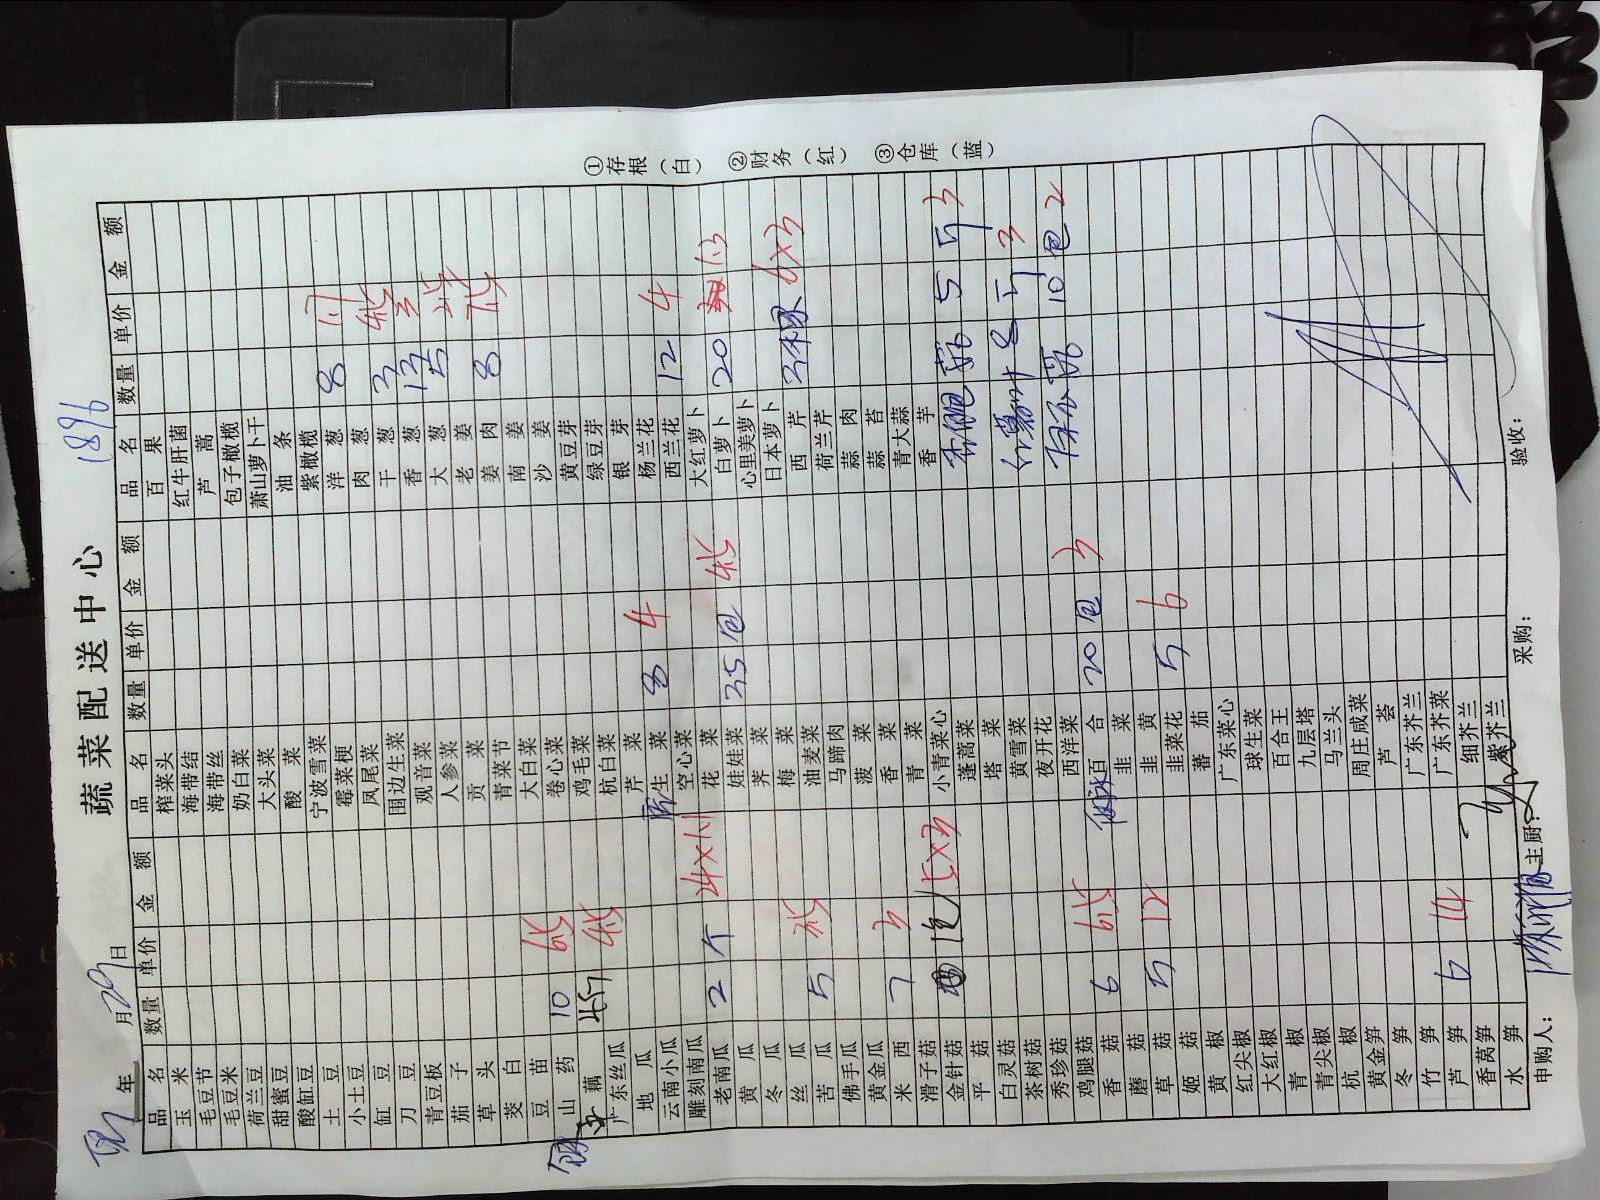 蔬菜配送中心
1896
年 月29日
品名 数量 单价 金额 品名 数量 单价 金额 品名 数量 单价 金额
玉米 榨菜头 百果
毛豆节 海带结 红牛肝菌
毛豆米 海带丝 芦蒿
荷兰豆 奶白菜 包子橄榄
甜蜜豆 大头菜 萧山萝卜干
酸缸豆 酸菜 油条
土豆 宁波雪菜 紫橄榄
小土豆 霉菜梗 洋葱 8 1.7
缸豆 凤尾菜 肉葱
刀豆 围边生菜 干葱 3
青豆板 观音菜 香葱
茄子 人参菜 大葱
草头 贡菜 老姜
茭白 青菜节 姜肉 8
豆苗 大白菜 南姜
山药 10 卷心菜 沙姜
藕 鸡毛菜 黄豆芽
广东丝瓜 杭白菜 绿豆芽
地瓜 芹菜 银芽
云南小瓜 生菜 8 4 杨兰花
雕刻南瓜 空心菜 西兰花 12 4
老南瓜 2个 花菜 大红萝卜
黄瓜 娃娃菜 35包 白萝卜 20 1.3
冬瓜 荠菜 心里美萝卜
丝瓜 梅菜 日本萝卜
苦瓜 5 油麦菜 西芹 3棵 6×3
佛手瓜 马蹄肉 荷兰芹
黄金瓜 菠菜 蒜肉
米西 7 3 香菜 蒜苔
滑子菇 青菜 青大蒜
金针菇 5×3 小青菜心 香芋
平菇 蓬蒿菜
白灵菇 塔菜
茶树菇 黄雪菜
秀珍菇 夜开花
鸡腿菇 西洋菜 10包 2
香菇 6 百合 20包 3
蘑菇 韭菜
草菇 5 12 韭黄 5 6
姬菇 韭菜花
黄椒 蕃茄
红尖椒 广东菜心
大红椒 球生菜
青椒 百合王
青尖椒 九层塔
杭椒 马兰头
黄金笋 周庄咸菜
冬笋 芦荟
竹笋 广东芥兰
芦笋 6 14 广东芥菜
香莴笋 细芥兰
水笋 紫芥兰
申购人: 主厨: 采购: 验收:
①存根（白） ②财务（红） ③仓库（蓝）